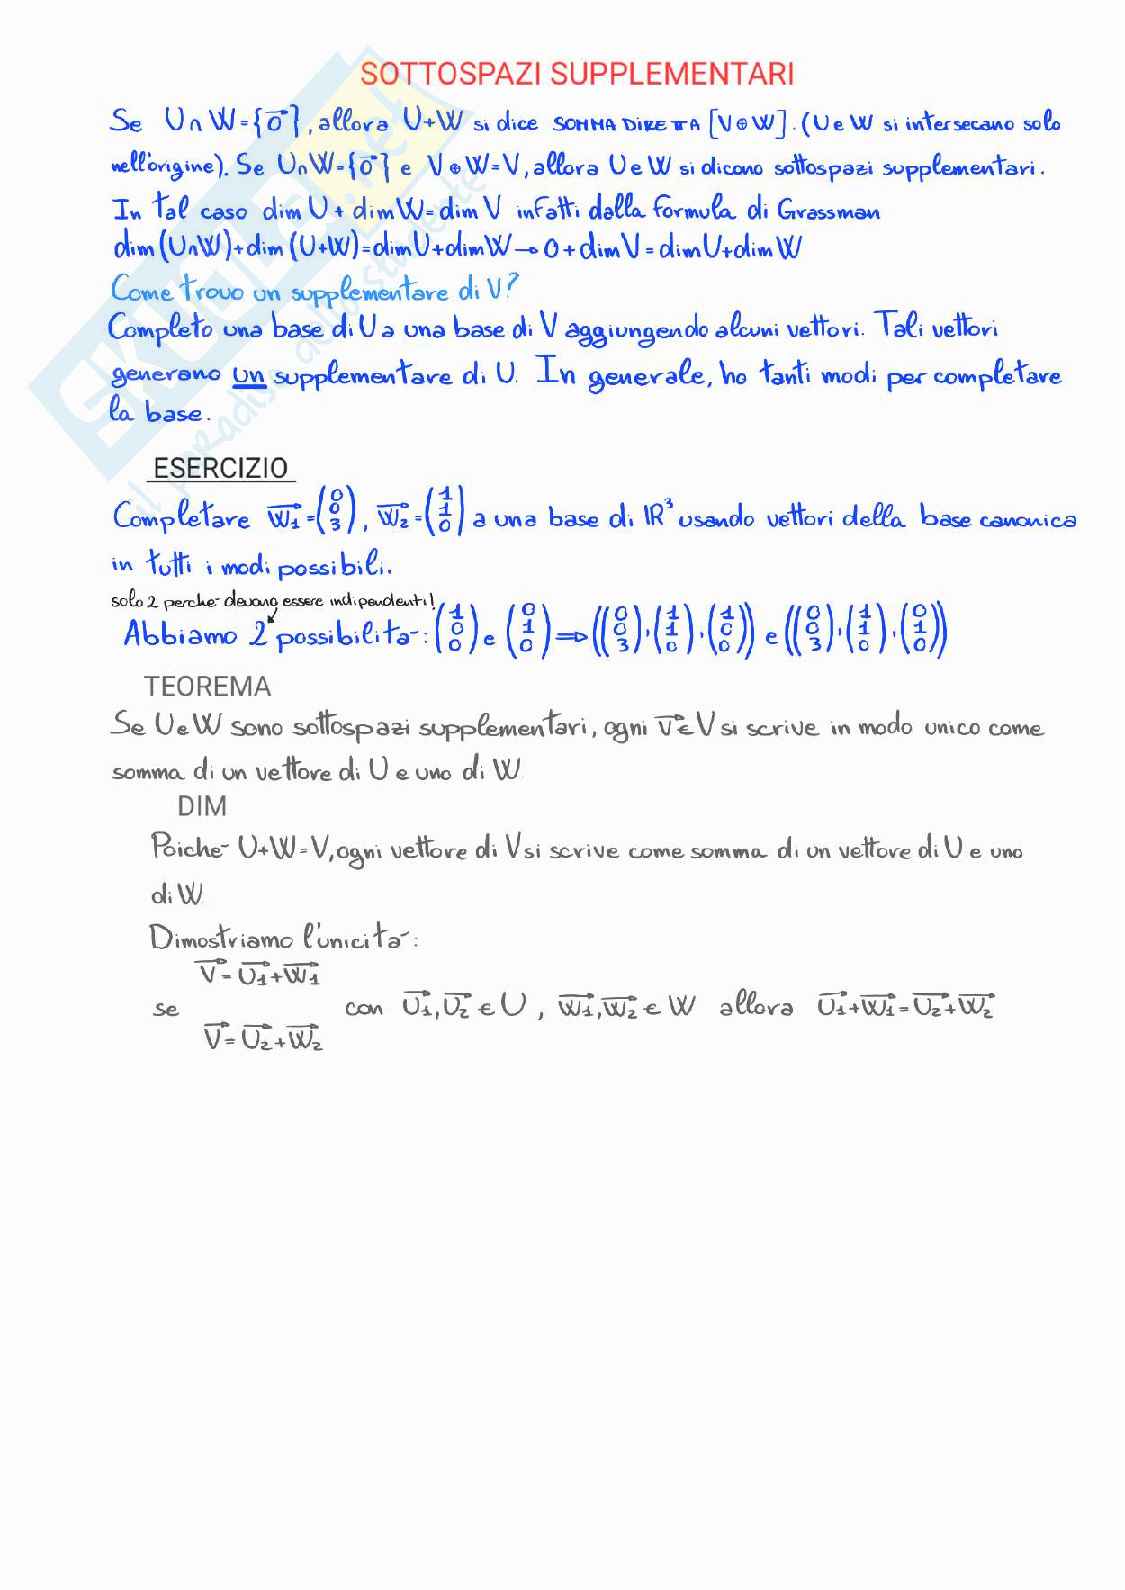 SOTTOSPAZI SUPPLEMENTARI
Se U∩W={0⃗}, allora U+W si dice SOMMA DIRETTA [V⊕W]. (U e W si intersecano solo
nell'origine). Se U∩W={0⃗} e V⊕W=V, allora U e W si dicono sottospazi supplementari.
In tal caso dim U + dim W = dim V infatti dalla formula di Grassman
dim(U∩W)+dim(U+W)=dimU+dimW → 0+dimV=dimU+dimW
Come trovo un supplementare di V?
Completo una base di U a una base di V aggiungendo alcuni vettori. Tali vettori
generano un supplementare di U. In generale, ho tanti modi per completare
la base.
ESERCIZIO
Completare w⃗₁=(0 0 3), w⃗₂=(1 1 0) a una base di ℝ³ usando vettori della base canonica
in tutti i modi possibili.
solo 2 perche- devono essere indipendenti!
Abbiamo 2 possibilita-: (1 0 0) e (0 1 0) ⇒ ((0 0 3),(1 1 0),(1 0 0)) e ((0 0 3),(1 1 0),(0 1 0))
TEOREMA
Se U e W sono sottospazi supplementari, ogni v⃗∈V si scrive in modo unico come
somma di un vettore di U e uno di W
DIM
Poiche- U+W=V, ogni vettore di V si scrive come somma di un vettore di U e uno
di W
Dimostriamo l'unicita-:
v⃗=u⃗₁+w⃗₁
se con u⃗₁,u⃗₂∈U, w⃗₁,w⃗₂∈W allora u⃗₁+w⃗₁=u⃗₂+w⃗₂
v⃗=u⃗₂+w⃗₂